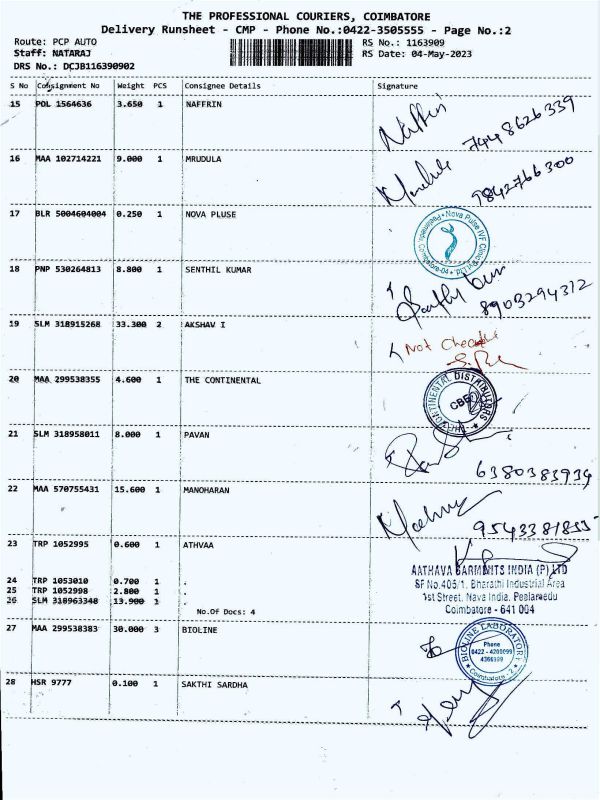 THE PROFESSIONAL COURIERS, COIMBATORE
Delivery Runsheet - CMP - Phone No.:0422-3505555 - Page No.:2
Route: PCP AUTO
RS No.: 1163909
Staff: NATARAJ
RS Date: 04-May-2023
DRS No.: DCJB116390902
S No Consignment No Weight PCS Consignee Details Signature
15 POL 1564636 3.650 1 NAFFRIN
Naffrin
7448626339
16 MAA 102714221 9.000 1 MRUDULA
9842766300
17 BLR 5004604004 0.250 1 NOVA PLUSE
Nova Pulse IVF Clinic Pvt Ltd.
Coimbatore-04
18 PNP 530264813 8.800 1 SENTHIL KUMAR
8903294312
19 SLM 318915268 33.300 2 AKSHAV I
Not Check
20 MAA 299538355 4.600 1 THE CONTINENTAL
THE CONTINENTAL DISTRIBUTORS
CBE
21 SLM 318958011 8.000 1 PAVAN
6380383934
22 MAA 570755431 15.600 1 MANOHARAN
9543381855
23 TRP 1052995 0.600 1 ATHVAA
24 TRP 1053010 0.700 1 .
25 TRP 1052998 2.800 1 .
26 SLM 318963348 13.900 1
No.Of Docs: 4
AATHAVA GARMENTS INDIA (P) LTD
SF No.405/1, Bharathi Industrial Area
1st Street, Nava India, Peelamedu
Coimbatore - 641 004
27 MAA 299538383 30.000 3 BIOLINE
BIOLINE LABORATORY
Phone
0422 - 4200099
4366999
Coimbatore - 2
28 HSR 9777 0.100 1 SAKTHI SARDHA